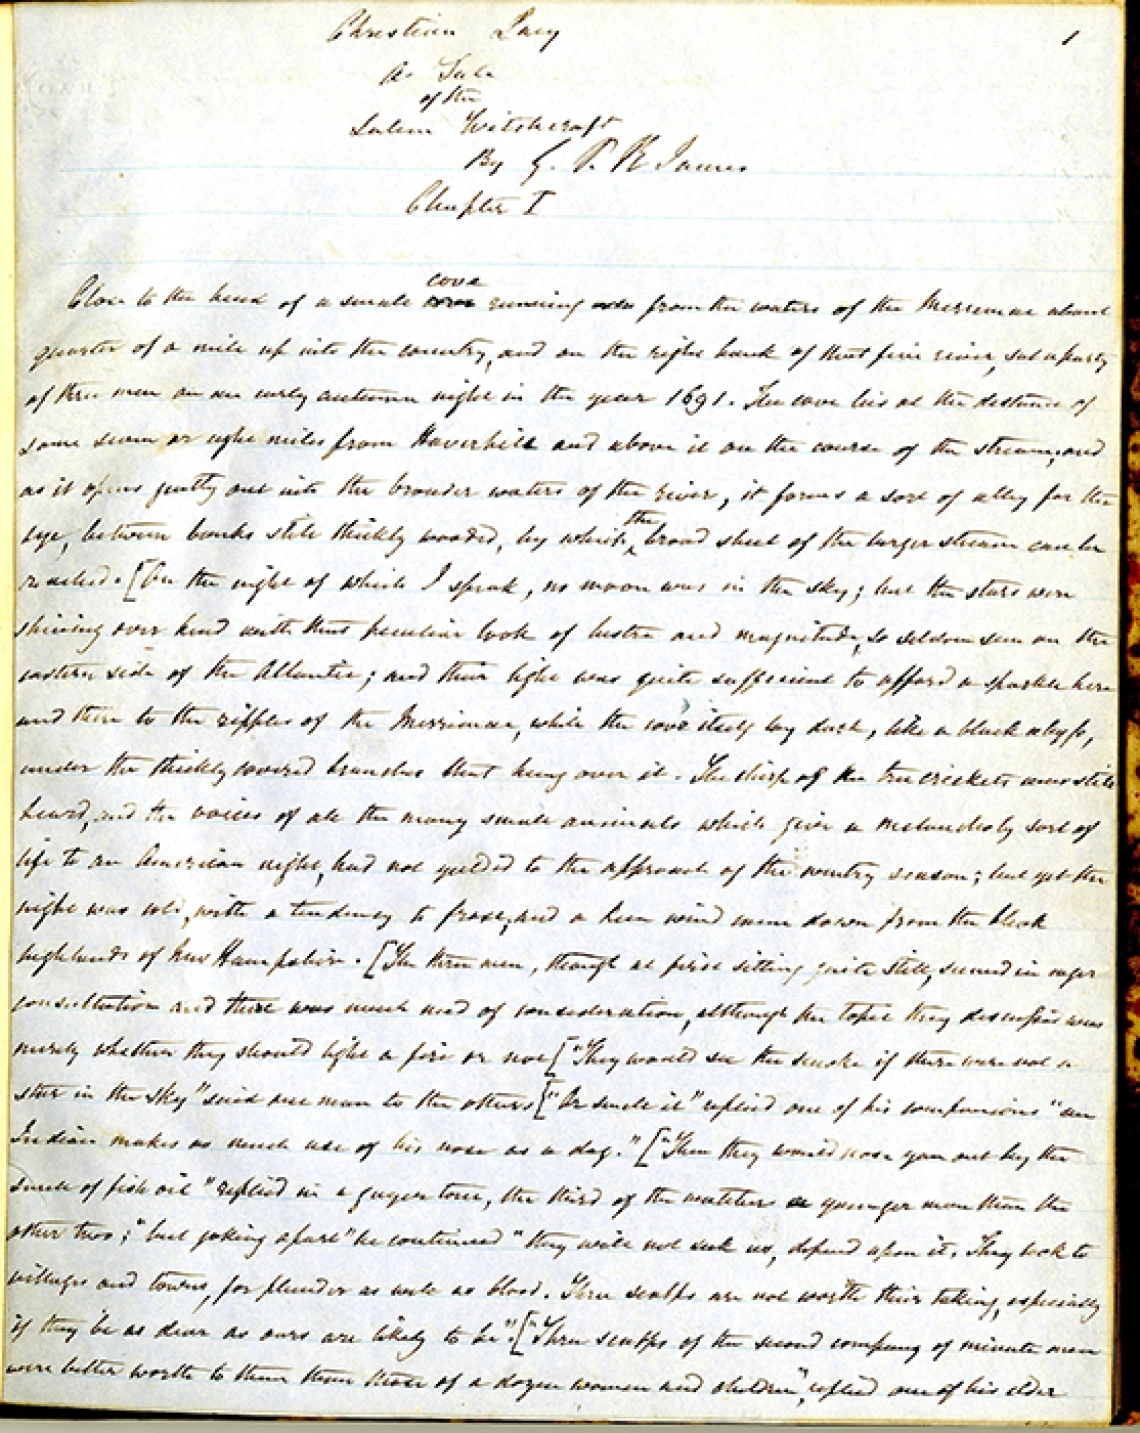 Christian Lacy
1
A Tale
of the
Salem Witchcraft
By G. P. R James
Chapter I
cove
Close to the head of a small running from the waters of the Merrimac about
quarter of a mile up into the country, and on the right bank of that fine river, sat a party
of three men on an early autumn night in the year 1691. The cove lies at the distance of
some seven or eight miles from Haverhill and above it on the course of the stream, and
as it opens gently out into the broader waters of the river, it forms a sort of alley for the
the
eye, between banks still thickly wooded, by which broad sheet of the larger stream can be
reached. [On the night of which I speak, no moon was in the sky; but the stars were
shining over head with that peculiar look of lustre and magnitude, so seldom seen on the
eastern side of the Atlantic; and their light was quite sufficient to afford a sparkle here
and there to the ripples of the Merrimac, while the cove itself lay dark, like a black abyss,
under the thickly covered branches that hung over it. The chirp of the tree crickets was still
heard, and the voices of all the many small animals which give a melancholy sort of
life to an American night, had not yielded to the approach of the wintry season; but yet the
night was cold, with a tendency to frost, and a keen wind came down from the bleak
highlands of New Hampshire. [The three men, though at first sitting quite still, seemed in eager
consultation and there was much need of consideration, although the topic they discussed was
merely whether they should light a fire or not ["They would see the smoke if there were not a
star in the sky" said one man to the others ["Or smell it" replied one of his companions "an
Indian makes as much use of his nose as a dog." ["Then they would nose you out by the
smell of fish oil" replied in a gayer tone, the third of the watchers a younger man than the
other two; "but joking apart" he continued "they will not seek us, depend upon it. They look to
villages and towns, for plunder as well as blood. Three scalps are not worth their taking, especially
if they be as dear as ours are likely to be". ["Three scalps of the second company of minute men
were better worth to them than those of a dozen women and children", replied one of his elder